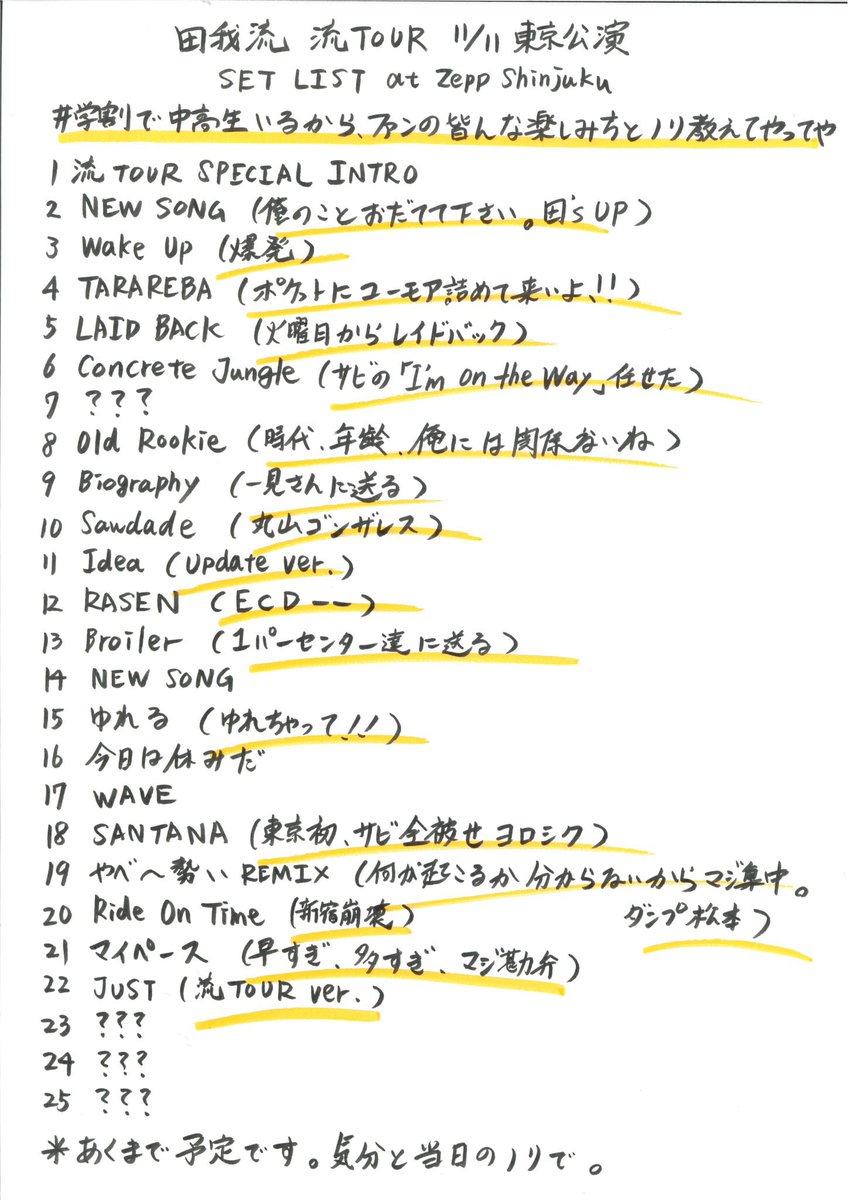 田我流 流TOUR 11/11 東京公演
SET LIST at Zepp Shinjuku
#学割で中高生いるから、ファンの皆んな楽しみちとノリ教えてやってや
1 流TOUR SPECIAL INTRO
2 NEW SONG (俺のことおだてて下さい。田's UP)
3 Wake Up (爆発)
4 TARAREBA (ポケットにユーモア詰めて来いよ!!)
5 LAID BACK (火曜日からレイドバック)
6 Concrete Jungle (サビの「I'm on the Way」任せた)
7 ???
8 Old Rookie (時代、年齢、俺には関係ないね)
9 Biography (一見さんに送る)
10 Sawdade (丸山ゴンザレス)
11 Idea (Update ver.)
12 RASEN (ECDーー)
13 Broiler (1パーセンター達に送る)
14 NEW SONG
15 ゆれる (ゆれちゃって!!)
16 今日は休みだ
17 WAVE
18 SANTANA (東京初、サビ全被せヨロシク)
19 やべ〜勢い REMIX (何が起こるか分からないからマジ集中。
20 Ride On Time (新宿崩壊) ダンプ松本)
21 マイペース (早すぎ、多すぎ、マジ勘弁)
22 JUST (流TOUR ver.)
23 ???
24 ???
25 ???
*あくまで予定です。気分と当日のノリで。